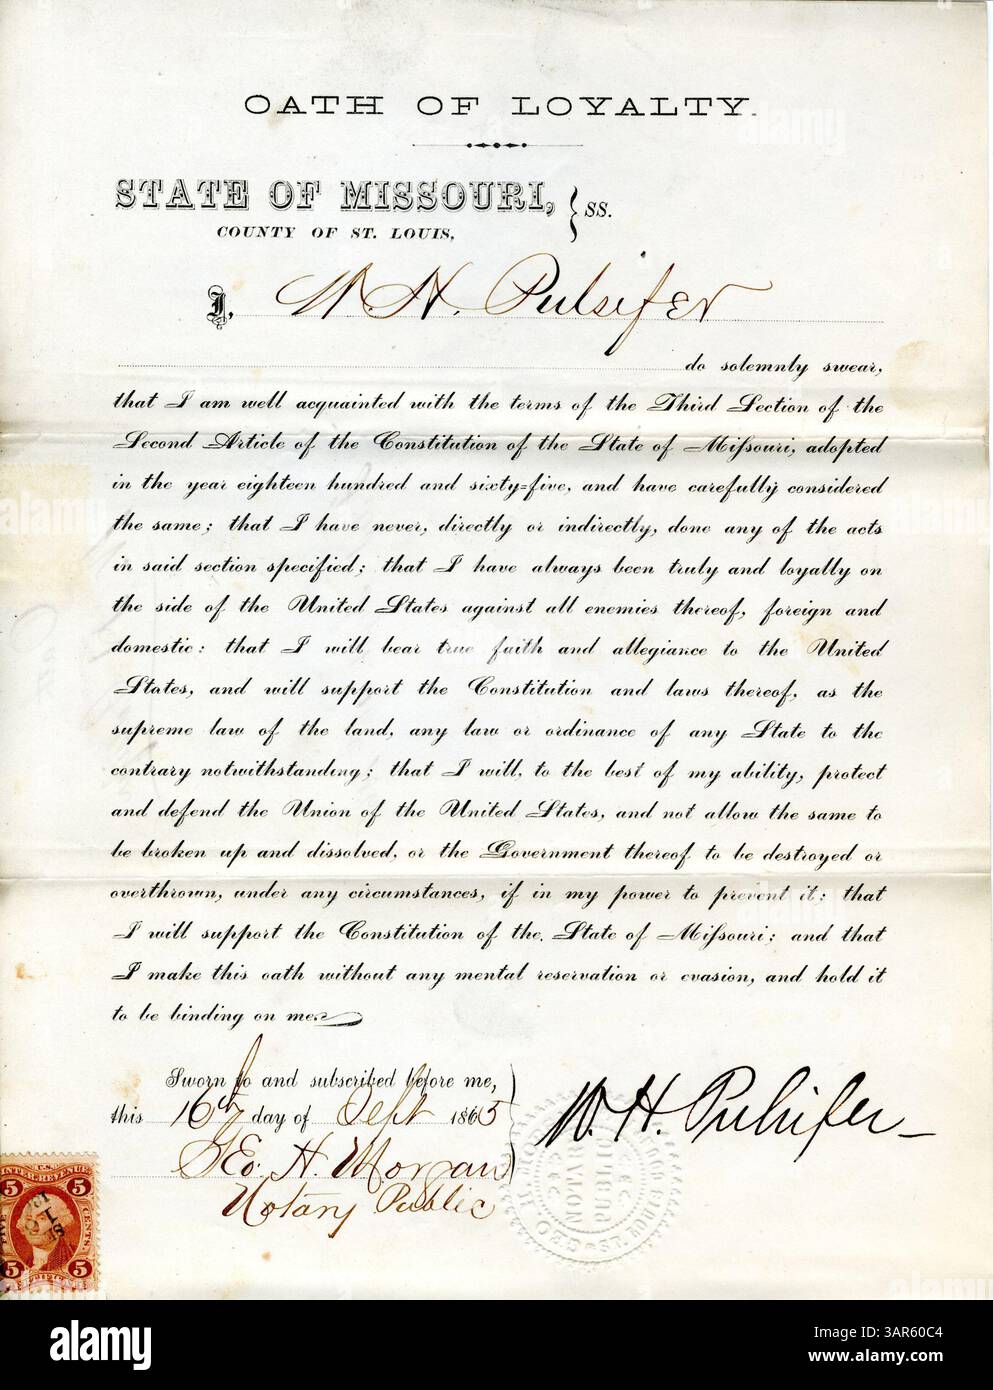 OATH OF LOYALTY.
STATE OF MISSOURI, } SS.
COUNTY OF ST. LOUIS,
I, W. H. Pulsifer
do solemnly swear,
that I am well acquainted with the terms of the Third Section of the
Second Article of the Constitution of the State of Missouri, adopted
in the year eighteen hundred and sixty-five, and have carefully considered
the same; that I have never, directly or indirectly, done any of the acts
in said section specified; that I have always been truly and loyally on
the side of the United States against all enemies thereof, foreign and
domestic: that I will bear true faith and allegiance to the United
States, and will support the Constitution and laws thereof, as the
supreme law of the land, any law or ordinance of any State to the
contrary notwithstanding; that I will, to the best of my ability, protect
and defend the Union of the United States, and not allow the same to
be broken up and dissolved, or the Government thereof to be destroyed or
overthrown, under any circumstances, if in my power to prevent it: that
I will support the Constitution of the State of Missouri; and that
I make this oath without any mental reservation or evasion, and hold it
to be binding on me.
Sworn to and subscribed before me,
this 16th day of Sept 1865
Geo. H. Morgan
Notary Public
W. H. Pulsifer
GEO. H. MORGAN ST. LOUIS CO. MO.
NOTARY
PUBLIC
U.S.
INTER. REVENUE
5 5
FIVE CENTS
5 5
alamy
alamy
Image ID: 3AR60C4
www.alamy.com